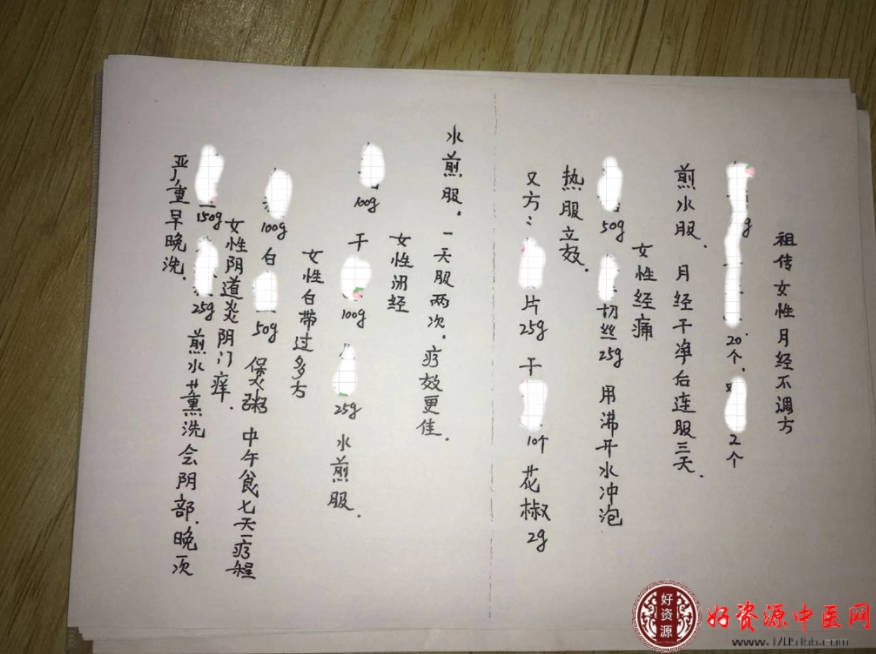 祖传女性月经不调方
g 20个, 2个
煎水服. 月经干净后连服三天.
女性经痛
50g 切丝25g 用沸开水冲泡
热服立效.
又方: 片25g 干 10个 花椒2g
水煎服. 一天服两次. 疗效更佳.
女性闭经
100g 干 100g 25g 水煎服.
女性白带过多方
100g 白 50g 煲粥 中午食七天一疗程
女性阴道炎阴门痒.
150g 25g 煎水熏洗会阴部. 晚一次
严重早晚洗.
好资源
好资源中医网